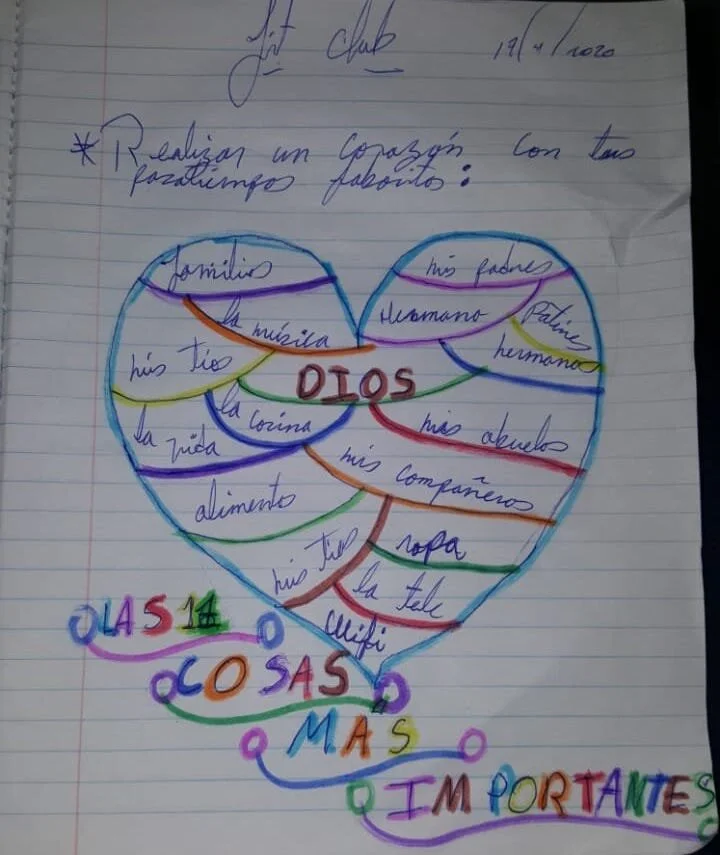 Jit club 19/4/2020
* Realizar un corazón con tus
pasatiempos faboritos:
familia
mis padres
la música
Hermano
Patines
mis tios
hermana
DIOS
la cocina
la vida
mis abuelos
mis compañeros
alimento
mis tios
ropa
la tele
Wifi
LAS 17
COSAS
MAS
IMPORTANTES